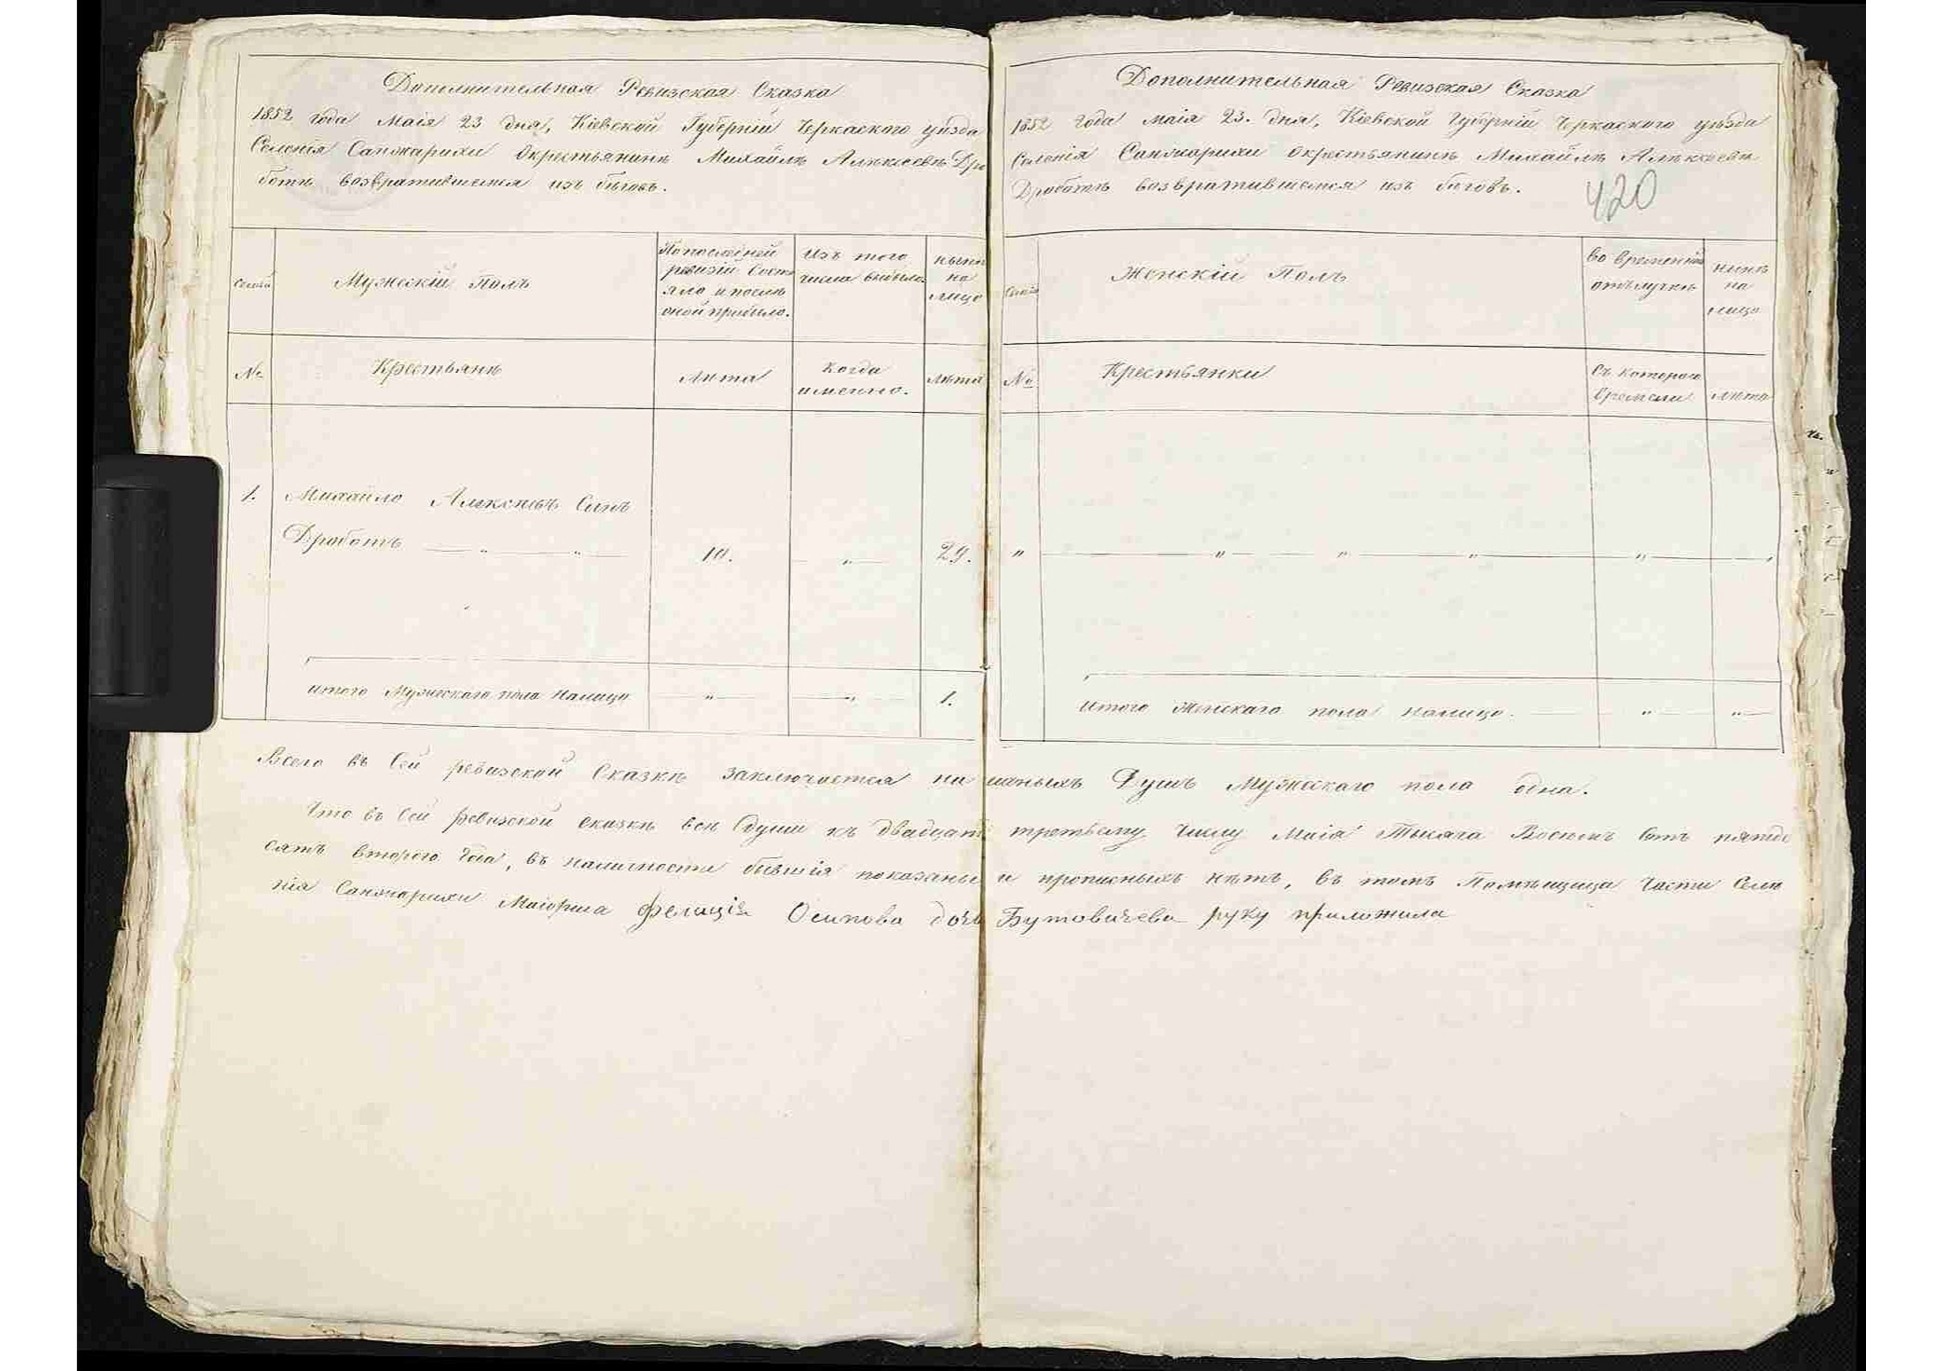 Дополнительная Ревизская Сказка
1852 года маія 23 дня, Кіевской Губерніи Черкаского уѣзда
Селенія Санжарихи окрестьянинѣ Михайлѣ Алѣксеевѣ Дро
ботѣ возвратившемся изъ бѣговъ.
Семьи
Мужескій Полъ
По последней ревизіи Состояло и послѣ оной прибыло.
Изъ того числа выбыло
нынѣ на лицо
№
Крестьянѣ
Лѣта
Когда именно.
лѣта
1. Михайло Алексѣевъ Сынъ
Дроботъ — „ — „ — 10. — „ — 29.
итого Мужескаго пола налицо — „ — — „ — 1.
Дополнительная Ревизская Сказка
1852 года маія 23. дня, Кіевской Губерніи Черкаского уѣзда
Селенія Санжарихи окрестьянинѣ Михайлѣ Алѣксеевѣ
Дроботѣ возвратившемся изъ бѣговъ.
420
Семьи
Женскій Полъ
во временной отълучкѣ
нынѣ на лицо
№
Крестьянки
Съ которого времени
лѣта
„ — „ — „ — „ — „ — „
итого Женскаго пола налицо. — „ — „ —
Всего въ Сей ревизской Сказкѣ заключается наличныхъ Душъ Мужескаго пола одна.
Что въ Сей ревизской сказкѣ всѣ души къ двадцать третьему числу Маія Тысяча Восемь Сотъ пятьде
сятъ второго года, въ наличности бывшія показаны и прописныхъ нѣтъ, въ томъ Помѣщица части Селе
нія Санжарихи Маіорша Фелиція Осипова дочь Бутовичева руку приложила